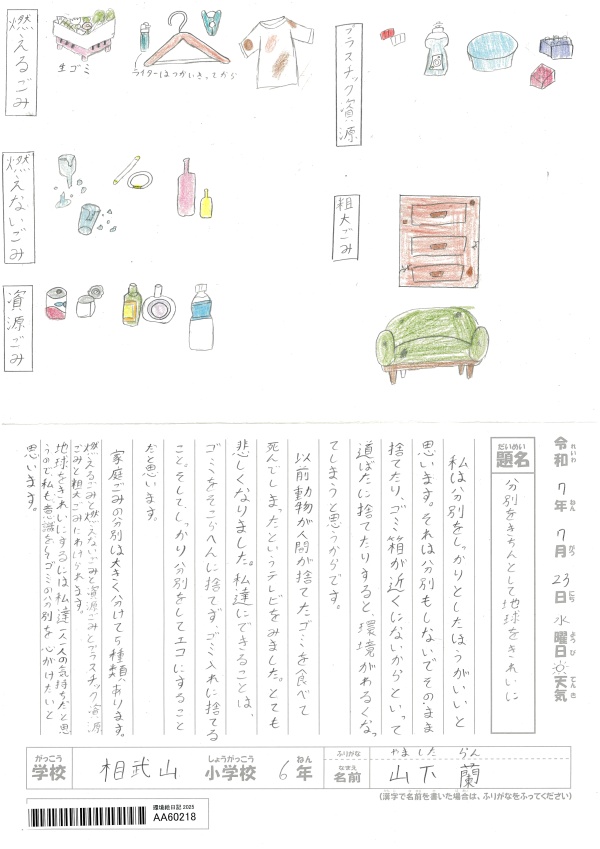 燃えるごみ
生ゴミ
ライターはつかいきってから
プラスチック資源
燃えないごみ
粗大ごみ
資源ごみ
令和7年7月23日水曜日天気
れいわ ねん がつ にち ようび てんき
だいめい
題名
分別をきちんとして地球をきれいに
私は分別をしっかりとしたほうがいいと
思います。それは分別もしないでそのまま
捨てたり、ゴミ箱が近くにないからといって
道ばたに捨てたりすると、環境があるくな
てしまうと思うからです。
以前動物が人間が捨てたゴミを食べて
死んでしまったというテレビをみました。とても
悲しくなりました。私達にできることは、
ゴミをそこらへんに捨てず、ゴミ入れに捨てる
こと。そして、しっかり分別をしてエコにすること
だと思います。
家庭ごみの分別は大きく分けて5種類あります。
燃えるごみと燃えないごみと資源ごみとプラスチック資源
ごみと粗大ごみにわけられます。
地球をきれいにするには私達一人一人の気持ちだと思
うので私も意識をしゴミの分別を心がけたいと
思います。
がっこう しょうがっこう ねん
学校 相武山 小学校 6年
ふりがな やました らん
なまえ
名前 山下 蘭
(漢字で名前を書いた場合は、ふりがなをふってください)
環境絵日記 2025
AA60218